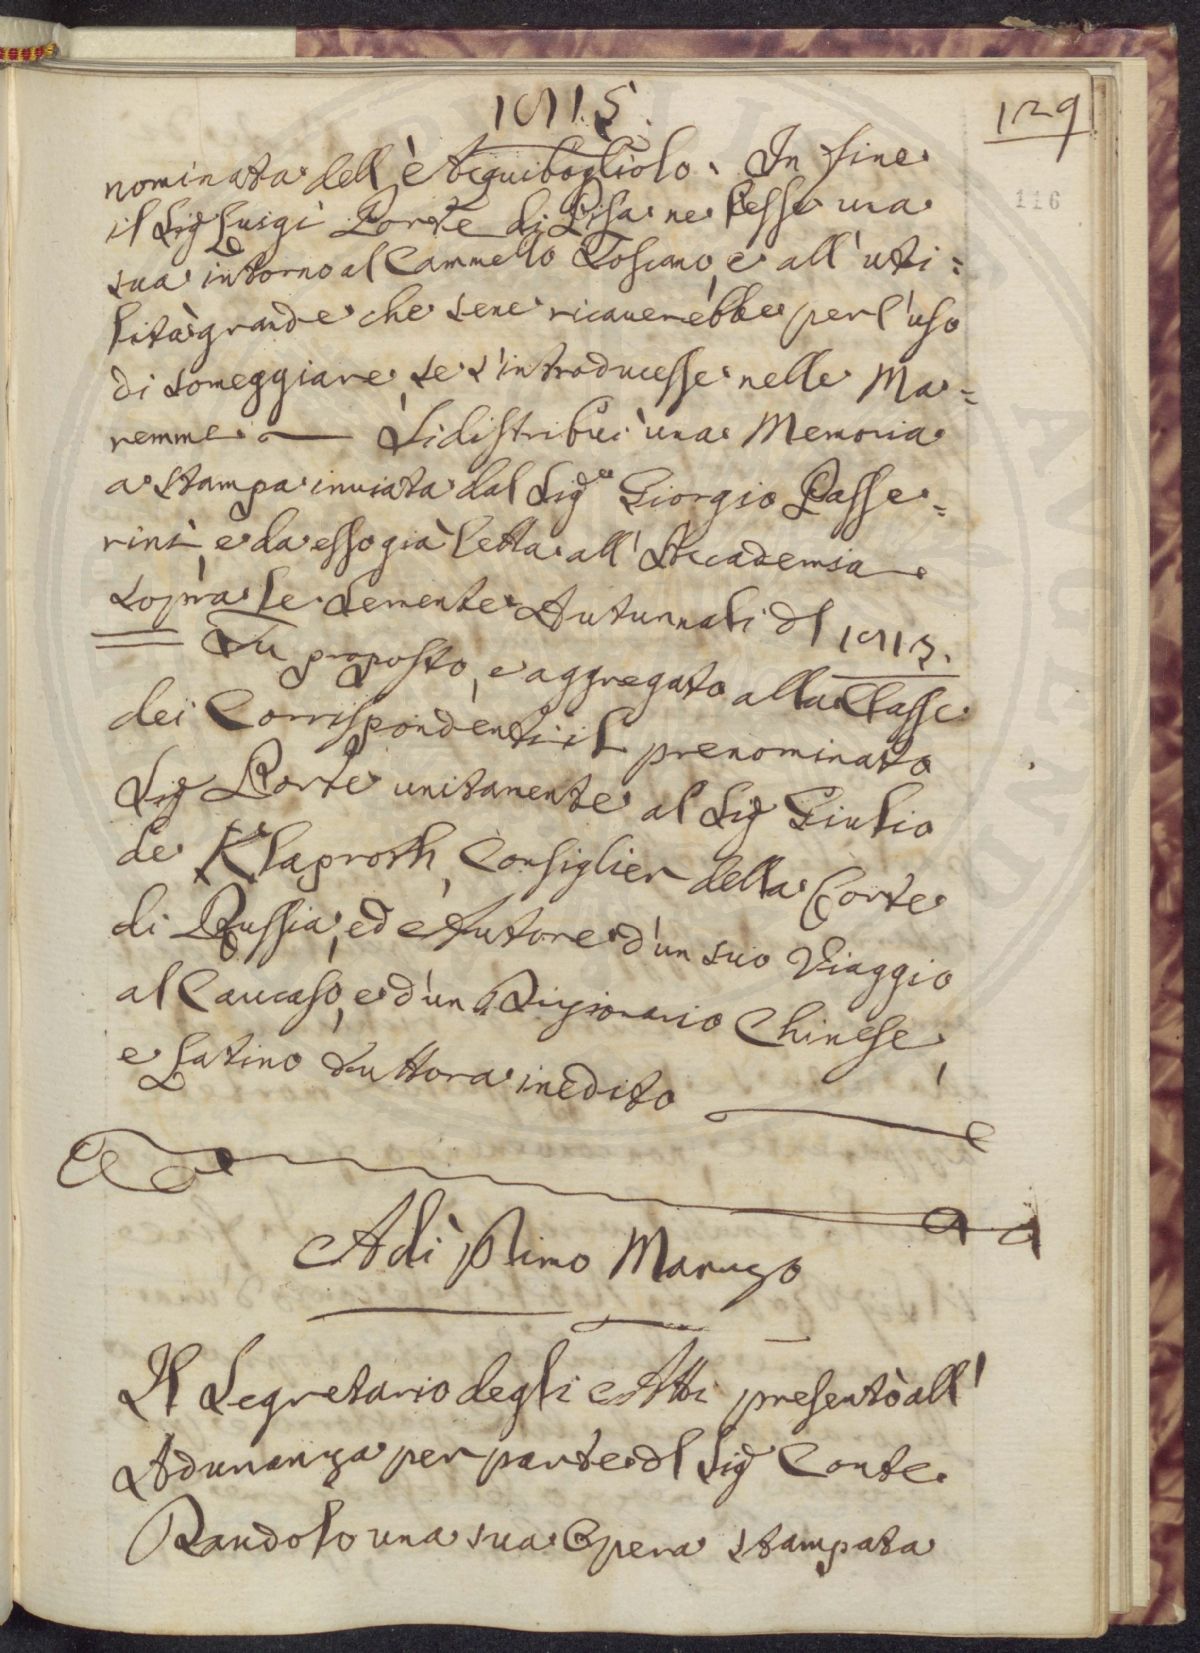 1815.
129
116
nominata dell'Acquidogliolo. In fine
il Sig Luigi Porte di Pisa ne lesse una
sua intorno al Cammello Toscano, e all'uti=
lità grande che sene ricaverebbe per l'uso
di someggiare, se s'introducesse nelle Ma=
remme. Si distribuì una Memoria
a stampa inviata dal Sig.e Giorgio Passe=
rini, e da esso già letta all'Accademia
sopra le semente Autunnali dl 1813.
Fu proposto, e aggregato alla Classe
dei Corrispondenti il prenominato
Sig Porte unitamente al Sig Giulio
de Klaproth, Consiglier della Corte
di Russia, ed Autore d'un suo Viaggio
al Caucaso, e d'un Dizionario Chinese,
e Latino tuttora inedito
Adì Primo Marzo
Il Segretario degli Atti presentò all'
Adunanza per parte dl Sig Conte
Dandolo una sua Opera stampata